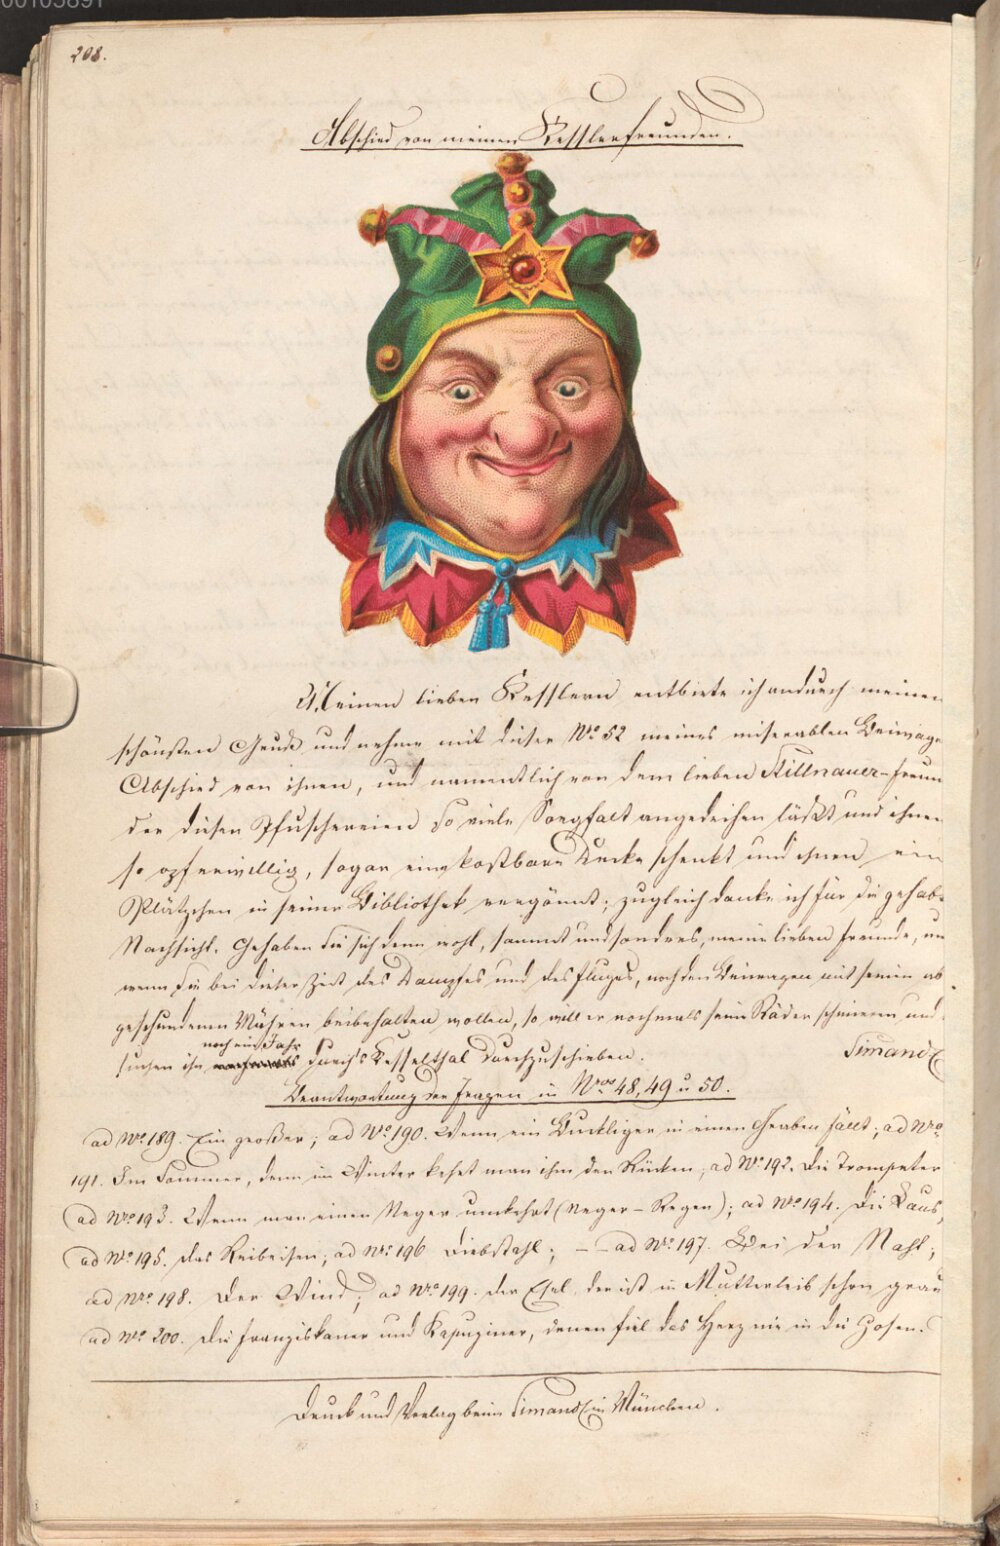 00105891
208.
Abschied von meinen Kesslerfreunden.
Meinen lieben Kesslern entbiete ich andurch meinen
schönsten Gruß und nehme mit dieser No 52 meines miserablen Beiwage
Abschied von ihnen, und namentlich von dem lieben Stillnauer-freun
der diesen Pfuschereien so viele Sorgfalt angedeihen läßt und ihnen
so opferwillig, sogar eine kostbare Decke schenkt und ihnen ein
Plätzchen in seiner Bibliothek vergönnt; zugleich danke ich für die gehab
Nachsicht. Gehaben Sie sich denn wohl, sammt und sonders, meine lieben freunde, un
wenn Sie bei dieser Zeit des Dampfes und des fluges, noch den Beiwagen mit seinen ab
geschundenen Mähren beibehalten wollen, so will er nochmals seine Räder schmieren und
noch ein Jahr
suchen ihn durch's Kesselthal durchzuschieben. Simandl
Beantwortung der Fragen in Nros 48, 49 u 50.
ad No 189. Ein großer; ad No 190. Wenn ein Buckliger in einen Graben fällt; ad Nro
191. Im Sommer, denn im Winter kehrt man ihm den Rücken; ad No 192. Die Trompeter
ad Nro 193. Wenn man einen Neger umkehrt (Neger - Regen); ad Nro 194. Die Laus,
ad No 195. das Reibeisen; ad Nro 196 Diebstahl; - - ad No 197. Bei der Naht;
ad Nro 198. Der Wind; ad Nro 199. der Esel, der ist in Mutterleib schon grau
ad No 200. Die Franziskaner und Kapuziner, denen fiel das Herz nie in die Hosen.
Druck und Verlag beim Simandl in München.